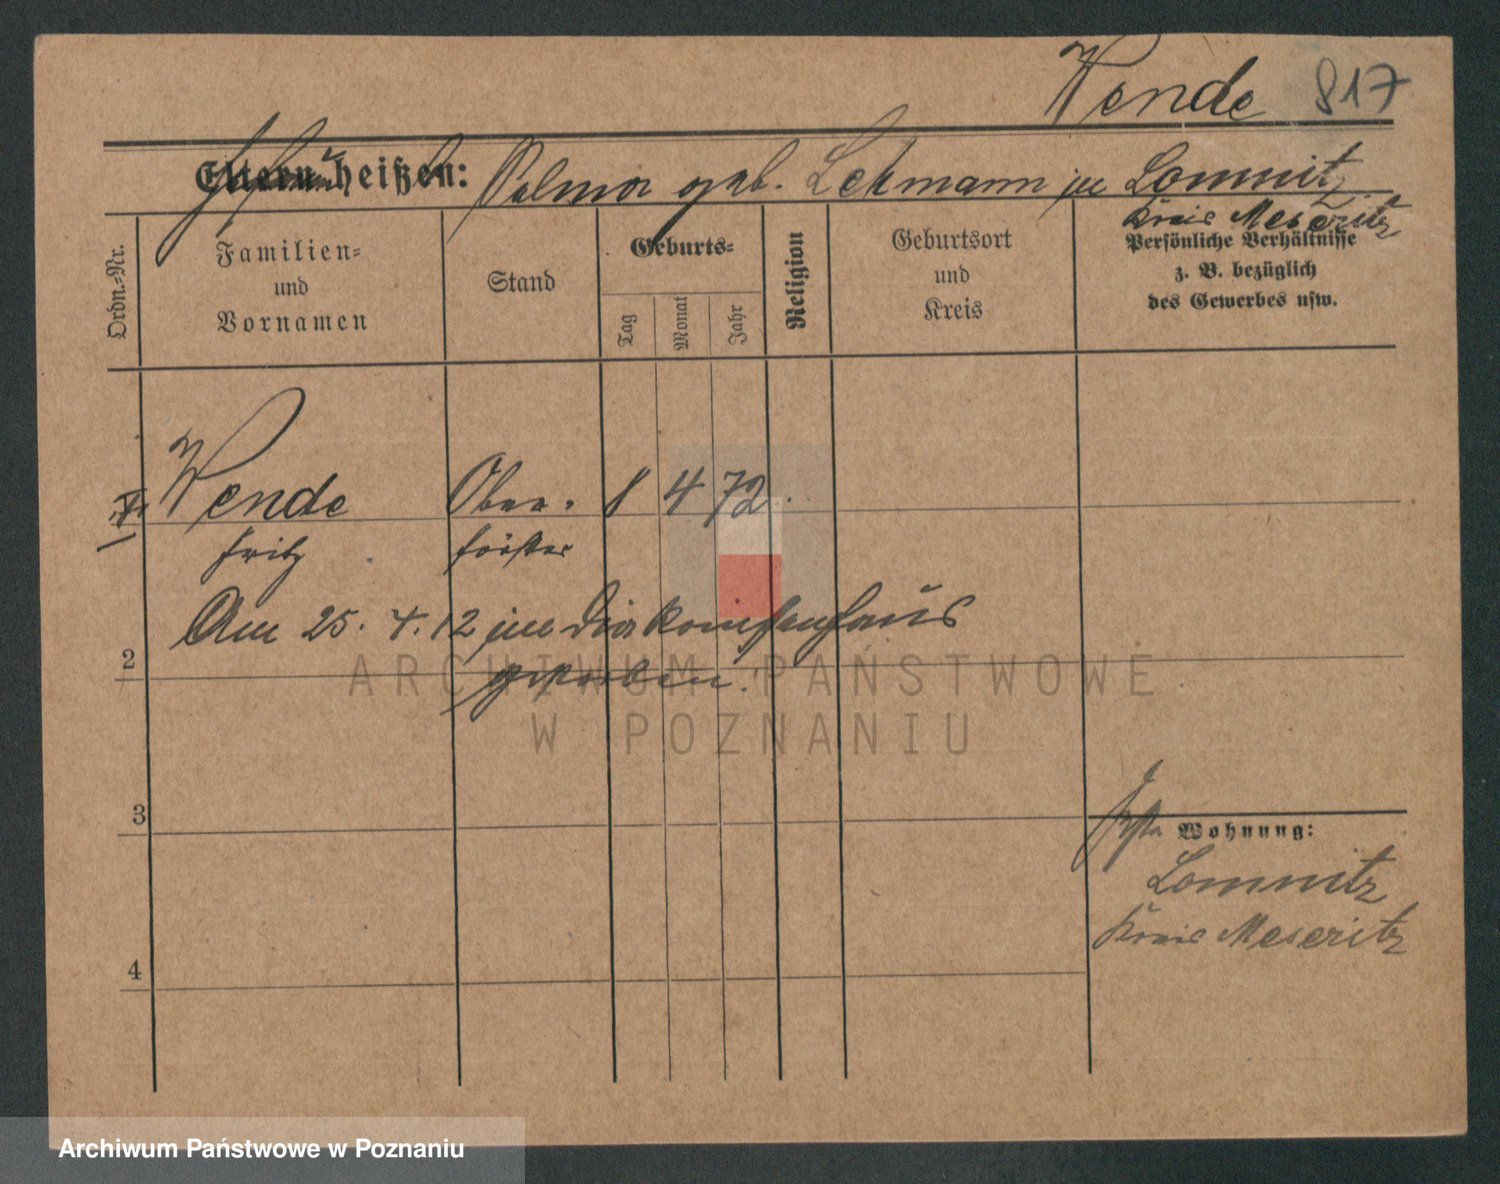 Wende 817
Eltern heißen: Palma geb. Lehmann in Lomnitz
Kreis Meseritz
Ordn.-Nr.
Familien-
und
Vornamen
Stand
Geburts-
Tag
Monat
Jahr
Religion
Geburtsort
und
Kreis
Persönliche Verhältnisse
z. B. bezüglich
des Gewerbes usw.
Wende Ober- 8 4 72.
Fritz förster
Am 25. 4. 12 im Diakonissenhaus
2
gestorben.
ARCHIWUM PAŃSTWOWE
W POZNANIU
3
Wohnung:
Lomnitz
Kreis Meseritz
4
Archiwum Państwowe w Poznaniu